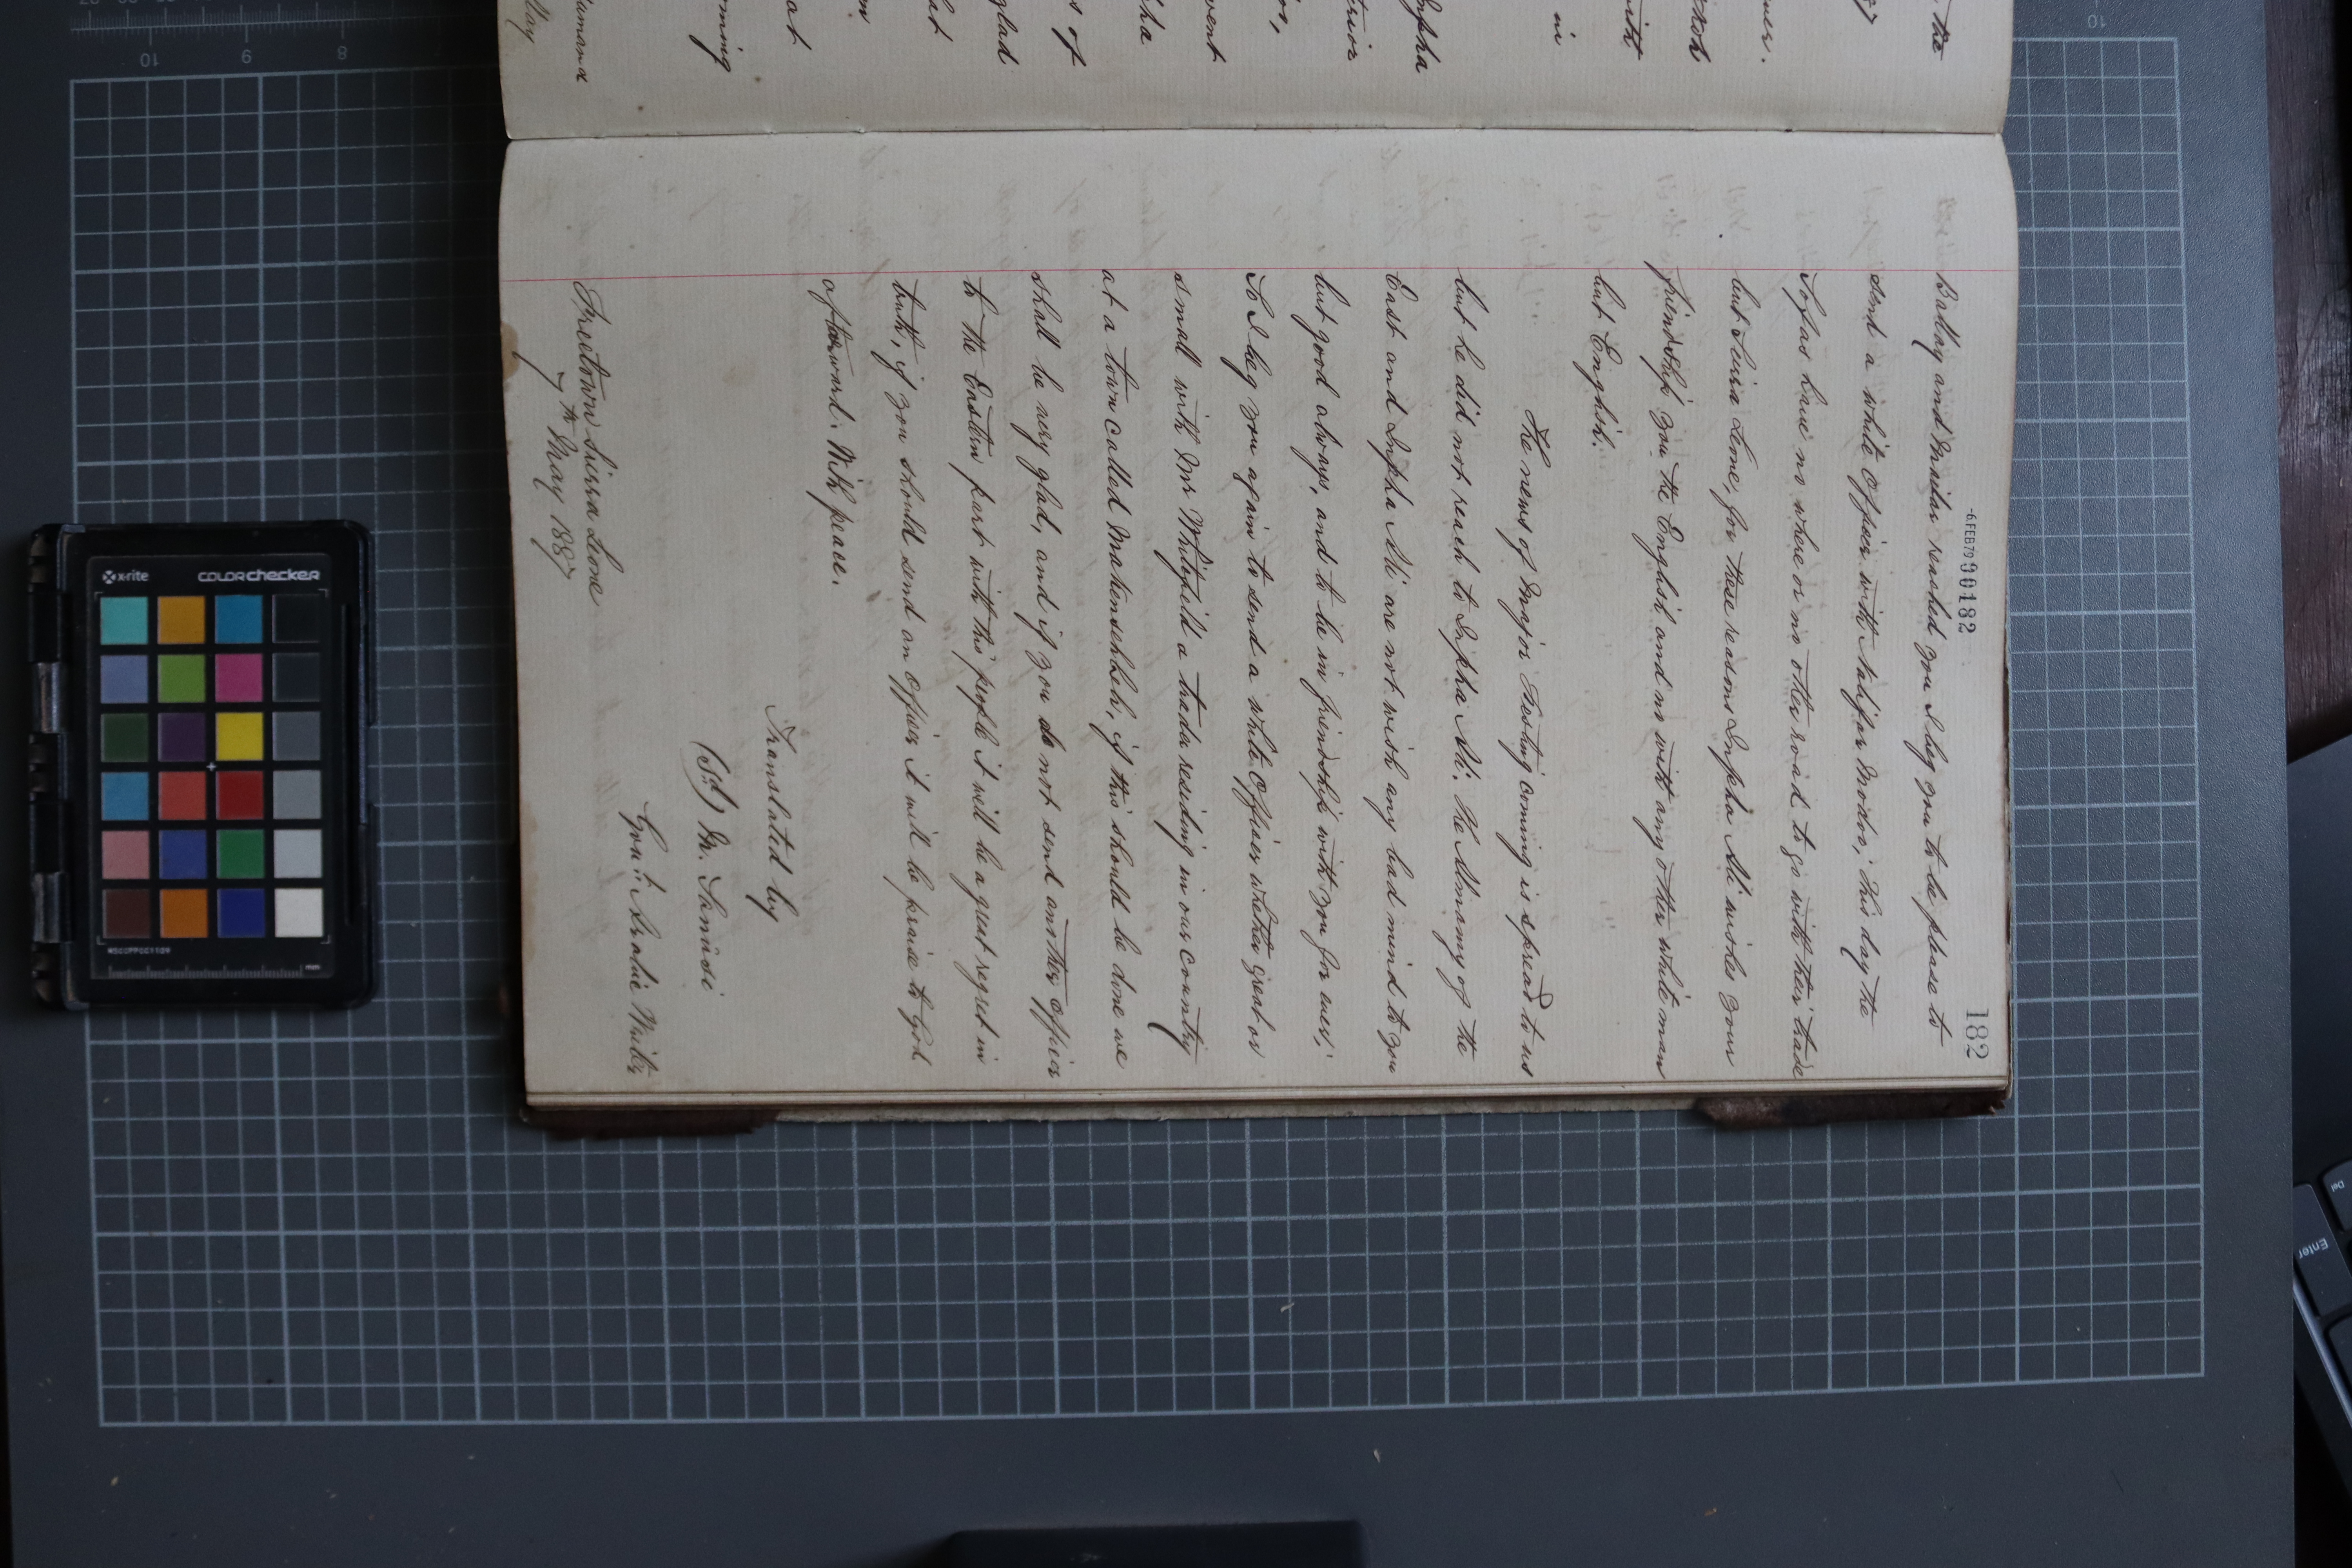 182
-6FEB79 000182
Ballay and Milar reached you I beg you to be please to
send a white Officer with Kalifar Modoo; this day the
Sofas have no where or no other road to go with their trade
but Seirra Leone, for these reasons Inpha Ali wishes your
friendship you the English and no with any other white man
but English.
The news of Major Festing coming is spread to us
but he did not reach to Inpha Ali. The Almamy of the
East and Inpha Ali are not wish any bad mind to you
but good always, and to be in friendship with you for ever;
So I beg you again to send a white Officer whether great or
small with Mr Whitfield a trader residing in our country
at a town called, if this should be done we
shall be very glad, and if you do not send another officer
to the Eastern part with this people it will be a great regret in
truth, if you should send an Officer it will be praise to God
afterward. With peace.
Translated by
(Sd) M. Sanusi
Gov:t Arabic Writer
Freetown Sierra Leone
7th May 1887